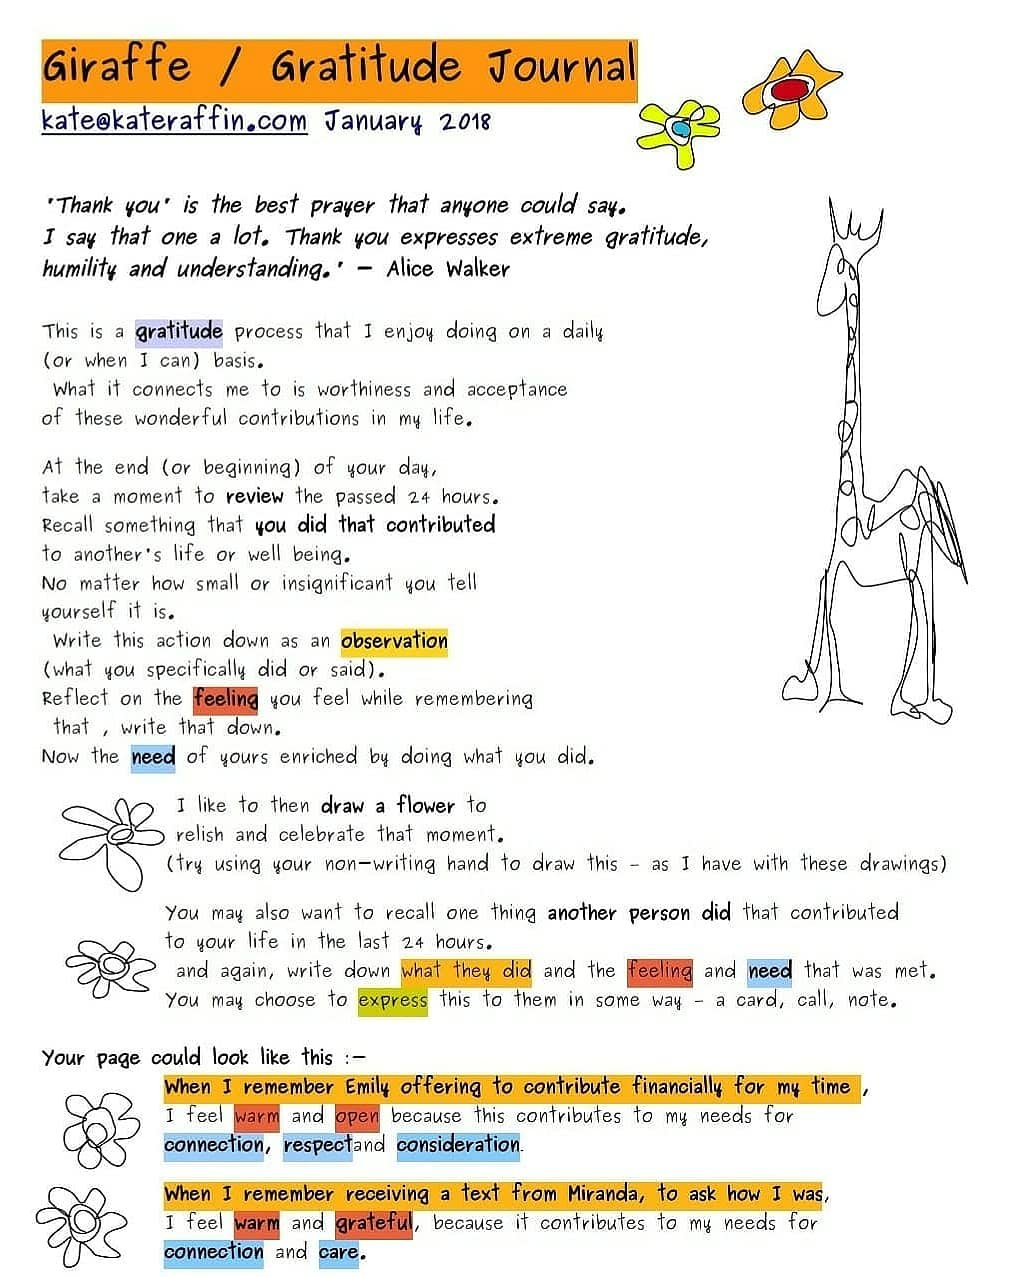 Giraffe / Gratitude Journal
kate@kateraffin.com January 2018
'Thank you' is the best prayer that anyone could say.
I say that one a lot. Thank you expresses extreme gratitude,
humility and understanding.' – Alice Walker
This is a gratitude process that I enjoy doing on a daily
(or when I can) basis.
What it connects me to is worthiness and acceptance
of these wonderful contributions in my life.
At the end (or beginning) of your day,
take a moment to review the passed 24 hours.
Recall something that you did that contributed
to another's life or well being.
No matter how small or insignificant you tell
yourself it is.
Write this action down as an observation
(what you specifically did or said).
Reflect on the feeling you feel while remembering
that , write that down.
Now the need of yours enriched by doing what you did.
I like to then draw a flower to
relish and celebrate that moment.
(try using your non-writing hand to draw this - as I have with these drawings)
You may also want to recall one thing another person did that contributed
to your life in the last 24 hours.
and again, write down what they did and the feeling and need that was met.
You may choose to express this to them in some way – a card, call, note.
Your page could look like this :-
When I remember Emily offering to contribute financially for my time ,
I feel warm and open because this contributes to my needs for
connection, respectand consideration.
When I remember receiving a text from Miranda, to ask how I was,
I feel warm and grateful, because it contributes to my needs for
connection and care.